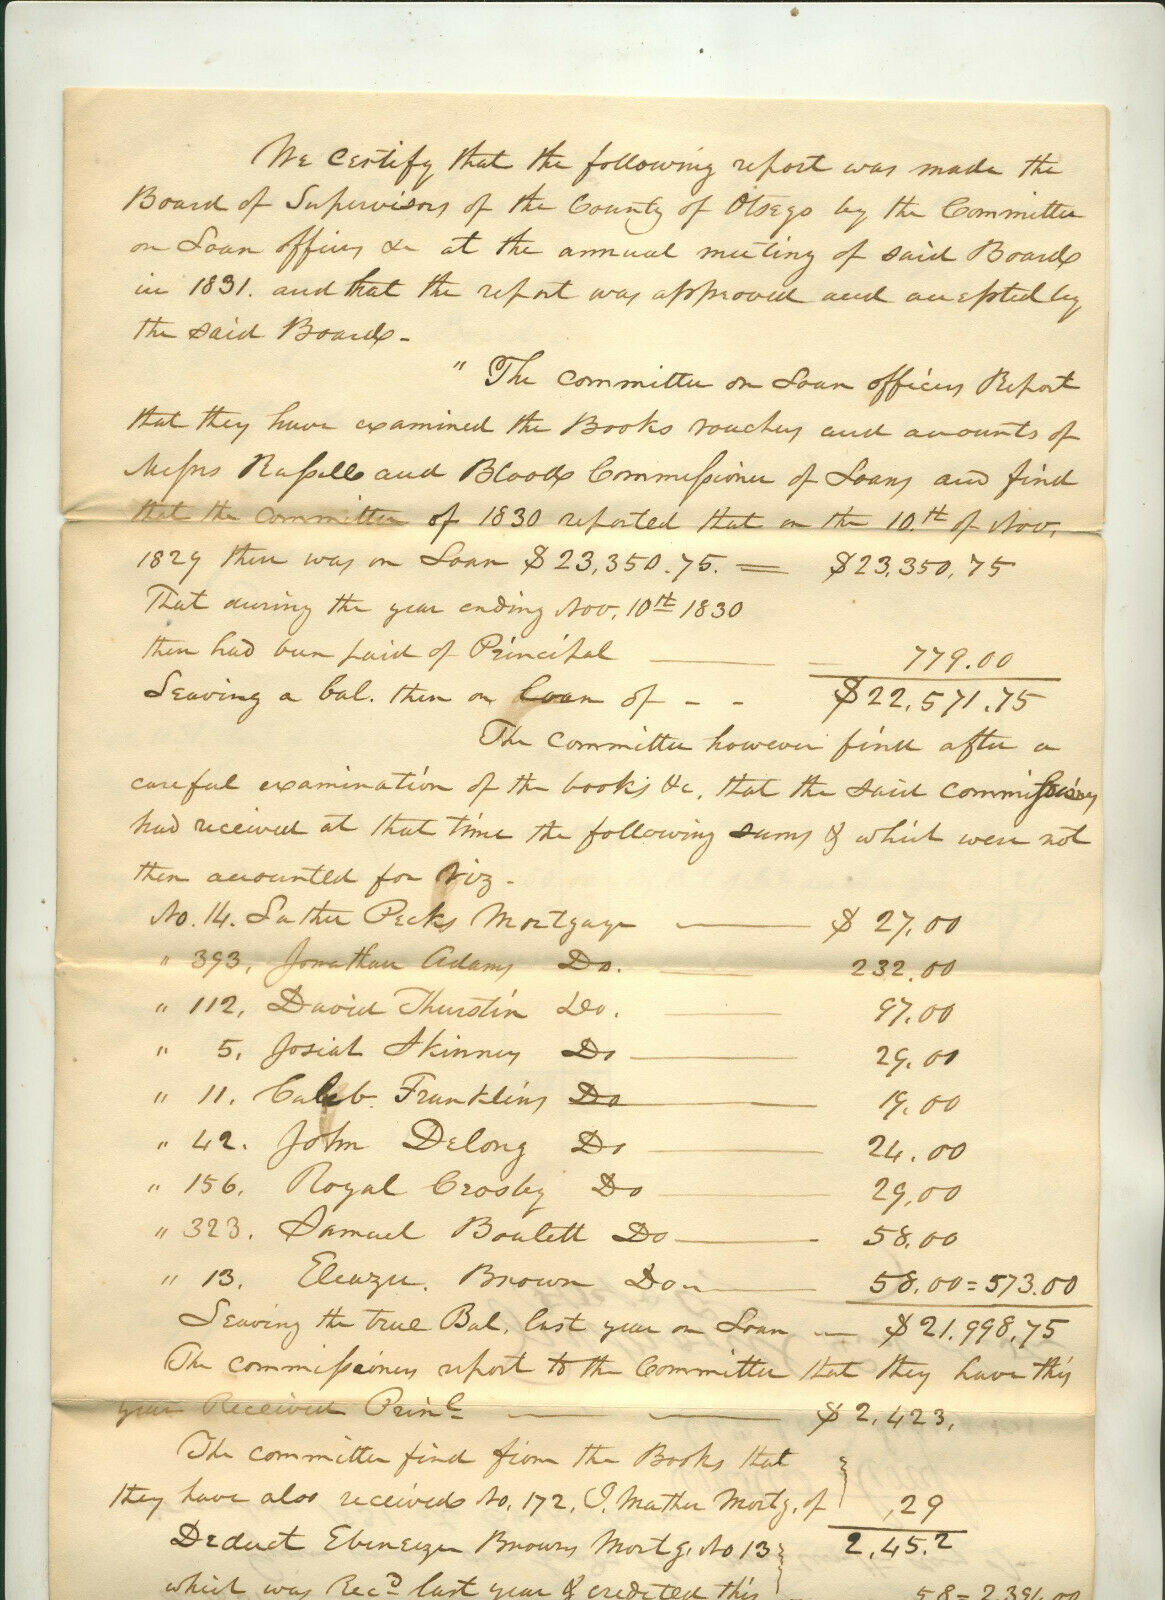 We Certify that the following report was made the
Board of Supervisors of the County of Otsego by the Committee
on Loan offices &c at the annual meeting of said Board
in 1831. and that the report was approved and accepted by
the said Board -
" The committee on Loan offices Report
that they have examined the Books vouchers and accounts of
Messrs Russell and Blood Commissioner of Loans and find
that the committee of 1830 reported that on the 10.th of Nov.
1829 there was on Loan $23,350.75. = $23,350,75
That during the year ending Nov. 10th 1830
there had been paid of Principal — 779.00
Leaving a bal. then on Loan of - - $22,571.75
The committee however find after a
careful examination of the books &c, that the said commissioners
had received at that time the following sums & which were not
then accounted for viz -
No. 14. Luther Pecks Mortgage — $ 27,00
" 393, Jonathan Adams Do. 232.00
" 112, David Thurstin Do. — 97.00
" 5, Josiah Skinney Do — 29.00
" 11. Caleb Franklins Do — 19.00
" 42. John Delong Do — 24.00
" 156, Royal Crosby Do — 29,00
" 323. Samuel Do — 58.00
" 13. Eleazer. Brown Do — 58.00 = 573.00
Leaving the true Bal. last year on Loan — $21,998,75
The commissioners report to the Committee that they have this
year Received Prinl — — $2,423,
The committee find from the Books that
they have also received No. 172, J. Mather Mortg. of ,29
Deduct Ebenezer Browns Mortg. No 13 2,452
which was Recd last year & credited this 58 = 2,394.00